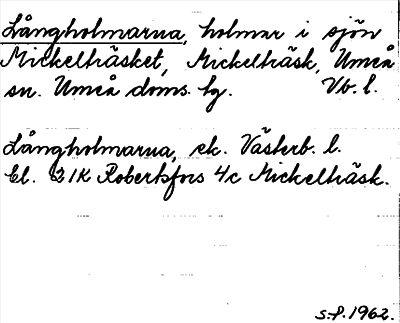 Långholmarna, holmar i sjön
Mickelträsket, Mickelträsk, Umeå
sn. Umeå doms. lg. Vb. l.
Långholmarna, ek. Västerb. l.
Bl. 21K Robertsfors 4c Mickelträsk.
S.f. 1962.